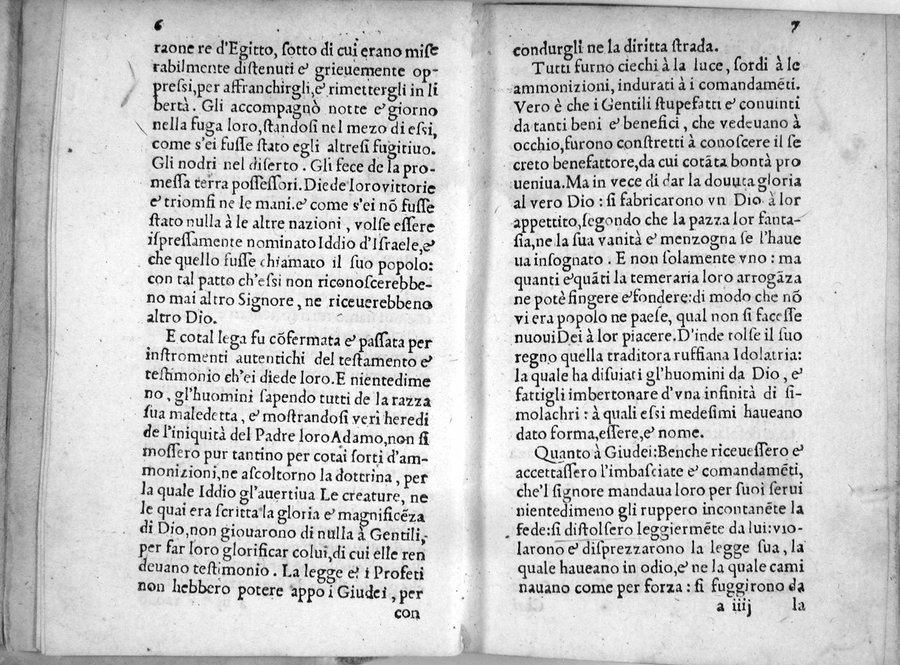 6
raone re d'Egitto, ſotto di cui erano miſe
rabilmente diſtenuti & grieuemente op-
preſſi, per affranchirgli, & rimettergli in li
bertà. Gli accompagnò notte & giorno
nella fuga loro, ſtandoſi nel mezo di eſſi,
come s'ei fuſſe ſtato egli altreſi fugitiuo.
Gli nodri nel diſerto. Gli fece de la pro-
meſſa terra poſſeſſori. Diede loro vittorie
& triomfi ne le mani. & come s'ei nõ fuſſe
ſtato nulla à le altre nazioni, volſe eſſere
iſpreſſamente nominato Iddio d'Iſraele, &
che quello fuſſe chiamato il ſuo popolo:
con tal patto ch'eſſi non riconoſcerebbe-
no mai altro Signore, ne riceuerebbeno
altro Dio.
E cotal lega fu cõfermata & paſſata per
inſtromenti autentichi del teſtamento &
teſtimonio ch'ei diede loro. E nientedime
no, gl'huomini ſapendo tutti de la razza
ſua maledetta, & moſtrandoſi veri heredi
de l'iniquità del Padre loro Adamo, non ſi
moſſero pur tantino per cotai ſorti d'am-
monizioni, ne aſcoltorno la dottrina, per
la quale Iddio gl'auertiua Le creature, ne
le quai era ſcritta la gloria & magnificẽza
di Dio, non giouarono di nulla à Gentili,
per far loro glorificar colui, di cui elle ren
deuano teſtimonio. La legge & i Profeti
non hebbero potere appo i Giudei, per
con
7
condurgli ne la diritta ſtrada.
Tutti furno ciechi à la luce, ſordi à le
ammonizioni, indurati à i comandamẽti.
Vero è che i Gentili ſtupefatti & conuinti
da tanti beni & benefici, che vedeuano à
occhio, furono conſtretti à conoſcere il ſe
creto benefattore, da cui cotãta bontà pro
ueniua. Ma in vece di dar la douuta gloria
al vero Dio: ſi fabricarono vn Dio à lor
appettito, ſegondo che la pazza lor fanta-
ſia, ne la ſua vanità & menzogna ſe l'haue
ua inſognato. E non ſolamente vno: ma
quanti & quãti la temeraria loro arrogãza
ne potè fingere & fondere: di modo che nõ
vi era popolo ne paeſe, qual non ſi faceſſe
nuoui Dei à lor piacere. D'inde tolſe il ſuo
regno quella traditora ruffiana Idolatria:
la quale ha diſuiati gl'huomini da Dio, &
fattigli imbertonare d'vna infinità di ſi-
molachri: à quali eſſi medeſimi haueano
dato forma, eſſere, & nome.
Quanto à Giudei: Benche riceueſſero &
accettaſſero l'imbaſciate & comandamẽti,
che'l ſignore mandaua loro per ſuoi ſerui
nientedimeno gli ruppero incontanẽte la
fede: ſi diſtolſero leggiermẽte da lui: vio-
larono & diſprezzarono la legge ſua, la
quale haueano in odio, & ne la quale cami
nauano come per forza: ſi fuggirono da
a iiij la